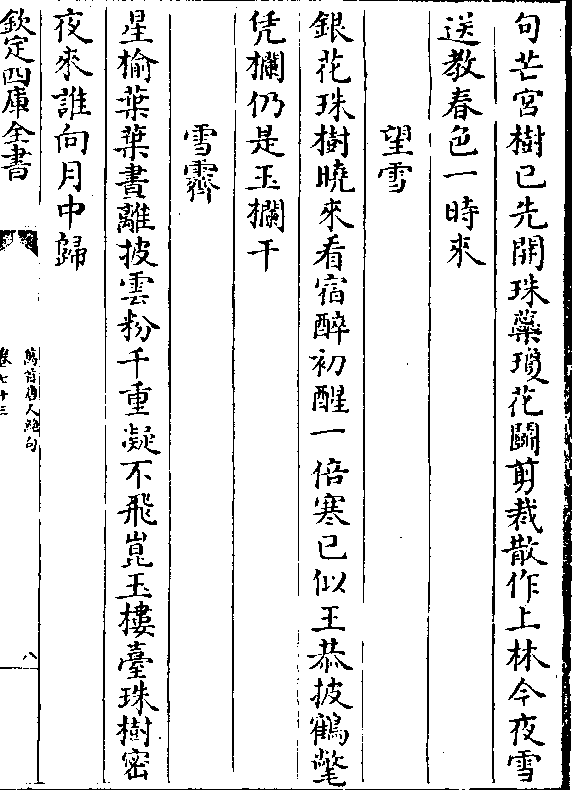 句芒宮樹已先開珠蘂瓊花鬭剪裁散作上林今夜雪
送教春色一時來
望雪
銀花珠樹曉來看宿醉初醒一倍寒已似王恭披鶴氅
凭欄仍是玉欄干
雪霽
星榆葉葉晝離披雲粉千重凝不飛崑玉樓臺珠樹密
夜來誰向月中歸
欽定四庫全書
萬首唐人絶句
卷七十三
八